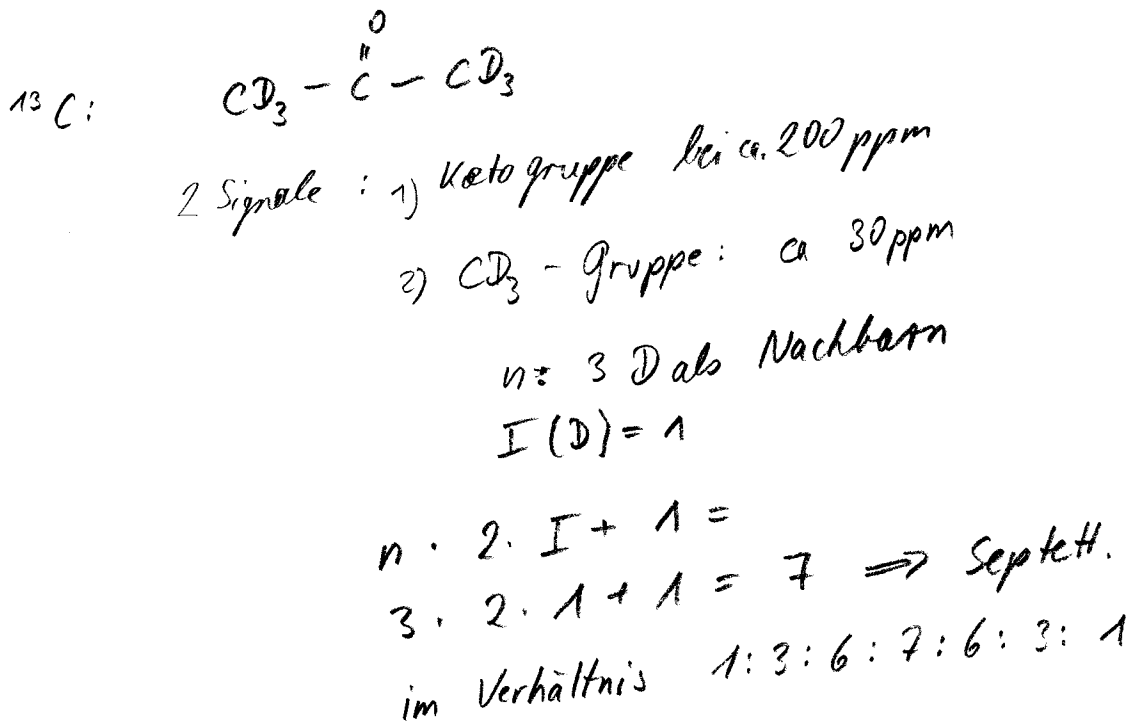 O
¹³C: CD₃ – C – CD₃
2 Signale : 1) Ketogruppe bei ca. 200 ppm
2) CD₃ – Gruppe : ca 30 ppm
n = 3 D als Nachbarn
I (D) = 1
n · 2 · I + 1 =
3 · 2 · 1 + 1 = 7 ⇒ Septett.
im Verhältnis 1 : 3 : 6 : 7 : 6 : 3 : 1